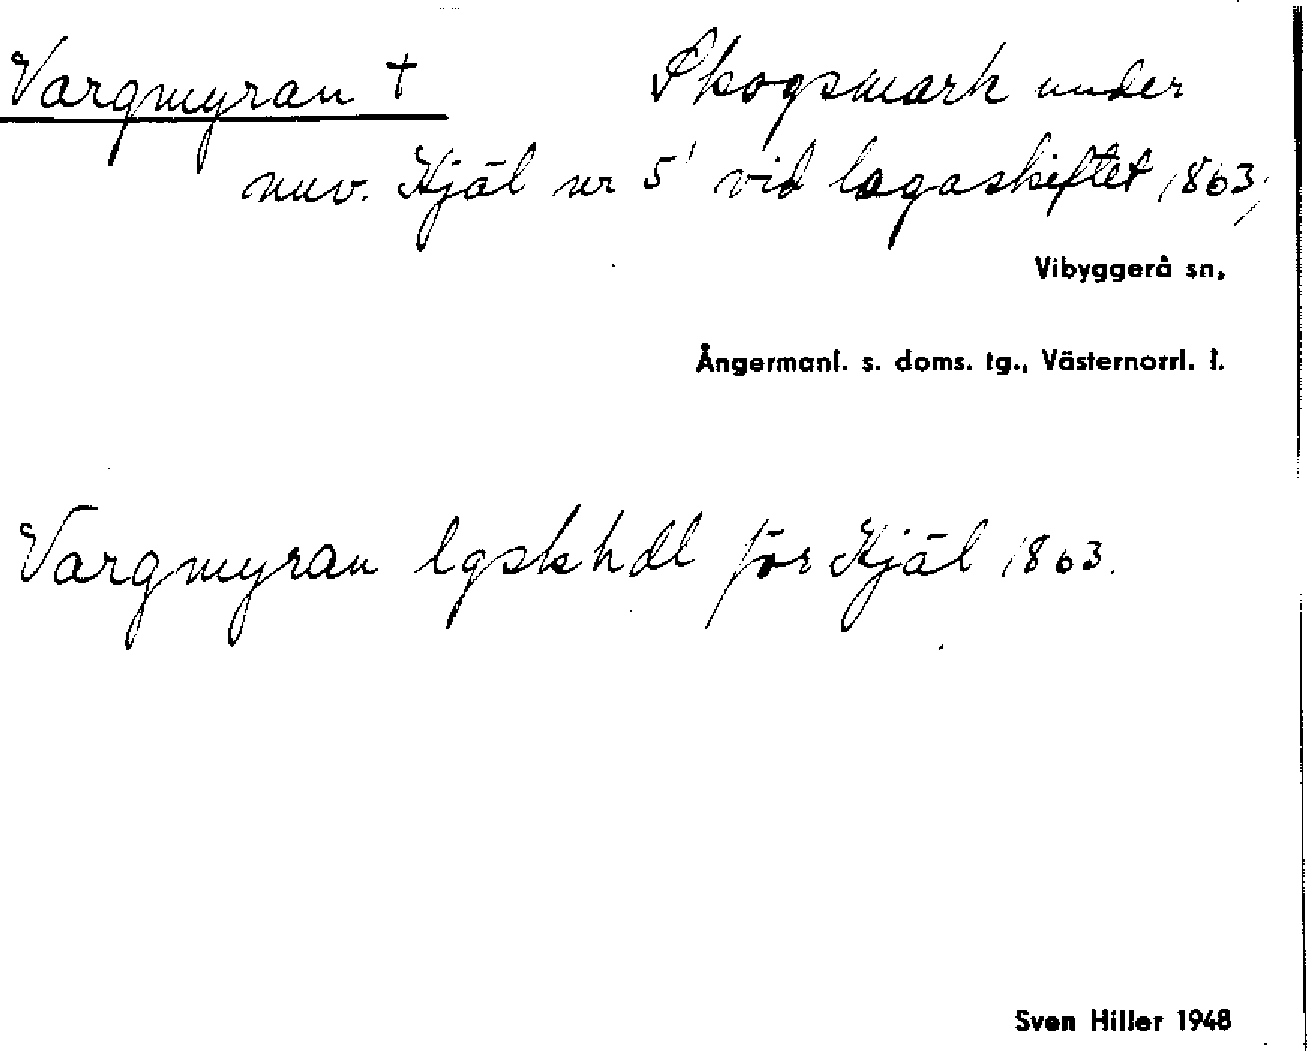 Vargmyran † Skogsmark under
nuv. Kjäl nr 5¹ vid lagaskiftet 1863,
Vibyggerå sn,
Ångermanl. s. doms. tg., Västernorrl. l.
Vargmyran lgskhdl för Kjäl 1863.
Sven Hiller 1948